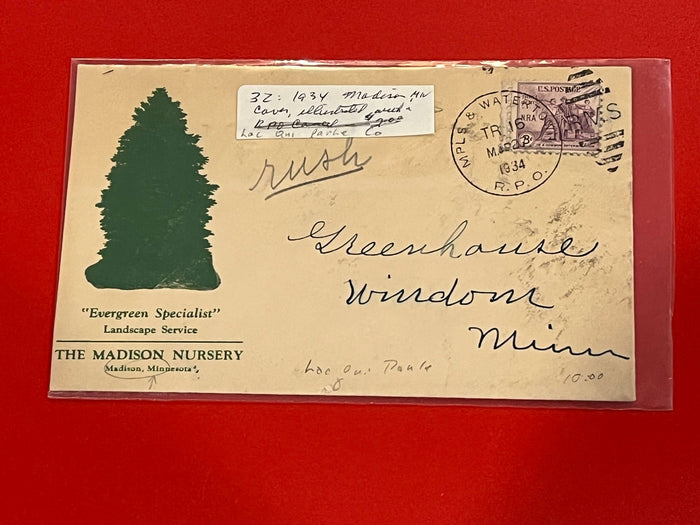 32: 1934 Madison, MN
Cover, illustrated, and
RPO Cancel $2.00
Lac Qui Parle Co
rush
MPLS & WATERTO
TR 16
MAR 22
1934
R.P.O.
U.S. POSTAGE
NRA
RMS
Greenhouse
Windom
Minn
"Evergreen Specialist"
Landscape Service
THE MADISON NURSERY
Madison, Minnesota
Lac Qui Parle
10.00